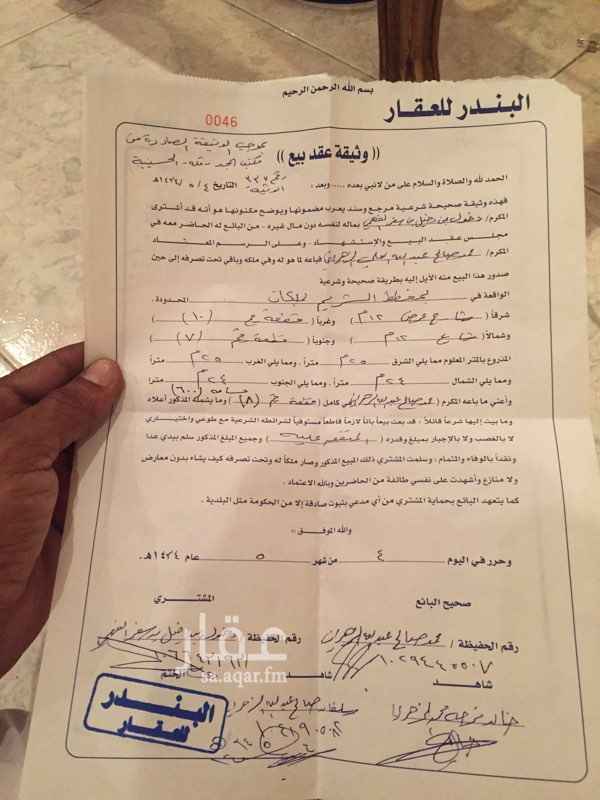 بسم الله الرحمن الرحيم
البندر للعقار
0046
بموجب الوثيقة الصادرة من
(( وثيقة عقد بيع ))
الحمد لله والصلاة والسلام على من لانبي بعده ..... وبعد :
التاريخ ٤ / ٥ / ١٤٣٤هـ
فهذه وثيقة صحيحة شرعية مرجع وسند يعرب مضمونها ويوضح مكنونها هو أنه قد أشترى
المكرم / بماله لنفسه دون مال غيره . من البائع له الحاضر معه في
مجلس عقد البيع والإستشهاد . وعلى الرسم المعتاد
المكرم / محمد صالح عبدالله الزهراني فباعه ما هو له وفي ملكه وباقي تحت تصرفه إلى حين
صدور هذا البيع منه الأيل إليه بطريقة صحيحة وشرعية
الواقعة في مخطط المحدودة .
شرقاً ( شارع عرض ١٢م ) وغرباً ( قطعة رقم ( ١٠ ) )
وشمالاً ( شارع ١٢م ) وجنوبا ( قطعة رقم ( ٧ ) )
المذروع بالمتر المعلوم مما يلي الشرق ٢٥م متراً . ومما يلي الغرب ٢٥م متراً
ومما يلي الشمال ٢٤م متراً . ومما يلي الجنوب ٢٤م مترا
مساحة ( ٦٠٠ )
وأعني ما باعه المكرم / محمد صالح عبدالله الزهراني كامل ( قطعة رقم ( ٨ ) ) وما يشمله المذكور أعلاه
وما بيت إليها شرعاً قائلاً ، قد بعت بيعاً باتاً لازماً قاطعاً مستوفياً لشرائطه الشرعية مع طوعي واختياري
لا بالغصب ولا بالإجبار بمبلغ وقدره ( المتفق عليه ) وجميع المبلغ المذكور سلم بيدي عدا
ونقداً بالوفاء والتمام . وسلمت المشتري ذلك المبيع المذكور وصار ملكاً له وتحت تصرفه كيف يشاء بدون معارض
ولا منازع وأشهدت على نفسي طائفة من الحاضرين وبالله الاعتماد .
كما يتعهد البائع بحماية المشتري من أي مدعي بثبوت صادقة إلا من الحكومة مثل البلدية .
والله الموفق ،،
وحرر في اليوم ٤ من شهر ٥ عام ١٤٣٤هـ .
صحيح البائع
المشتري
محمد صالح عبدالله الزهراني
رقم الحفيظة /
رقم الحفيظة /
شاهد
شاهد
الختم
عقار
sa.aqar.fm
البندر
للعقار